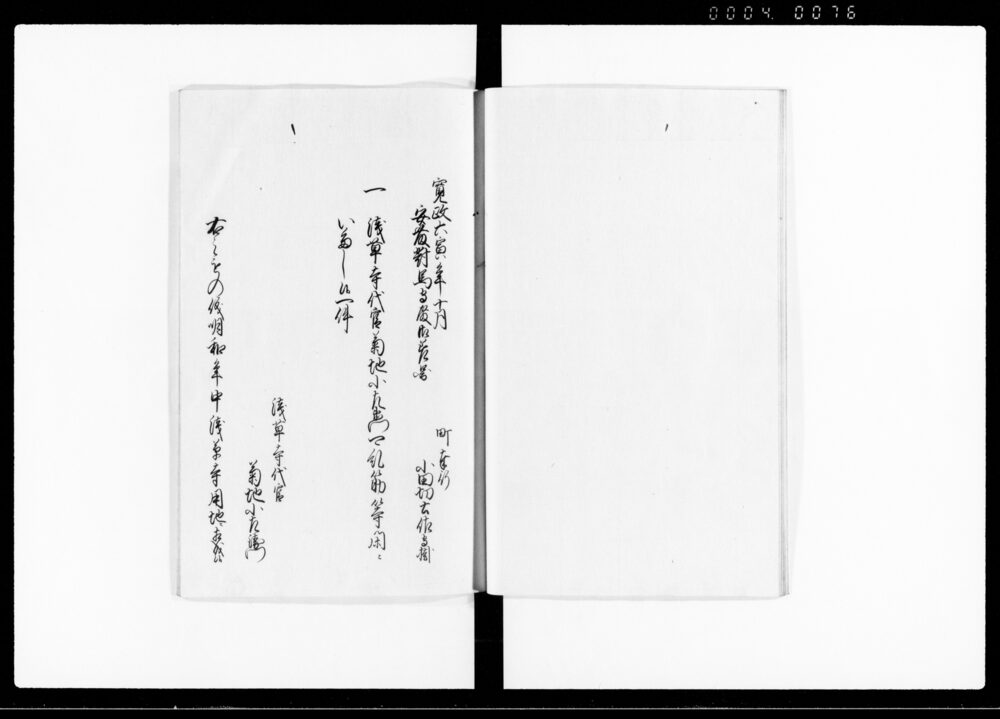 0004 0076
寛政六寅年十月
安藤對馬守殿御差圖
町奉行
小田切土佐守掛
一 淺草寺代官菊地小左衛門 糺筋等閑ニ
いたし候一件
淺草寺代官
菊地小左衛門
右之もの儀明和年中淺草寺用地